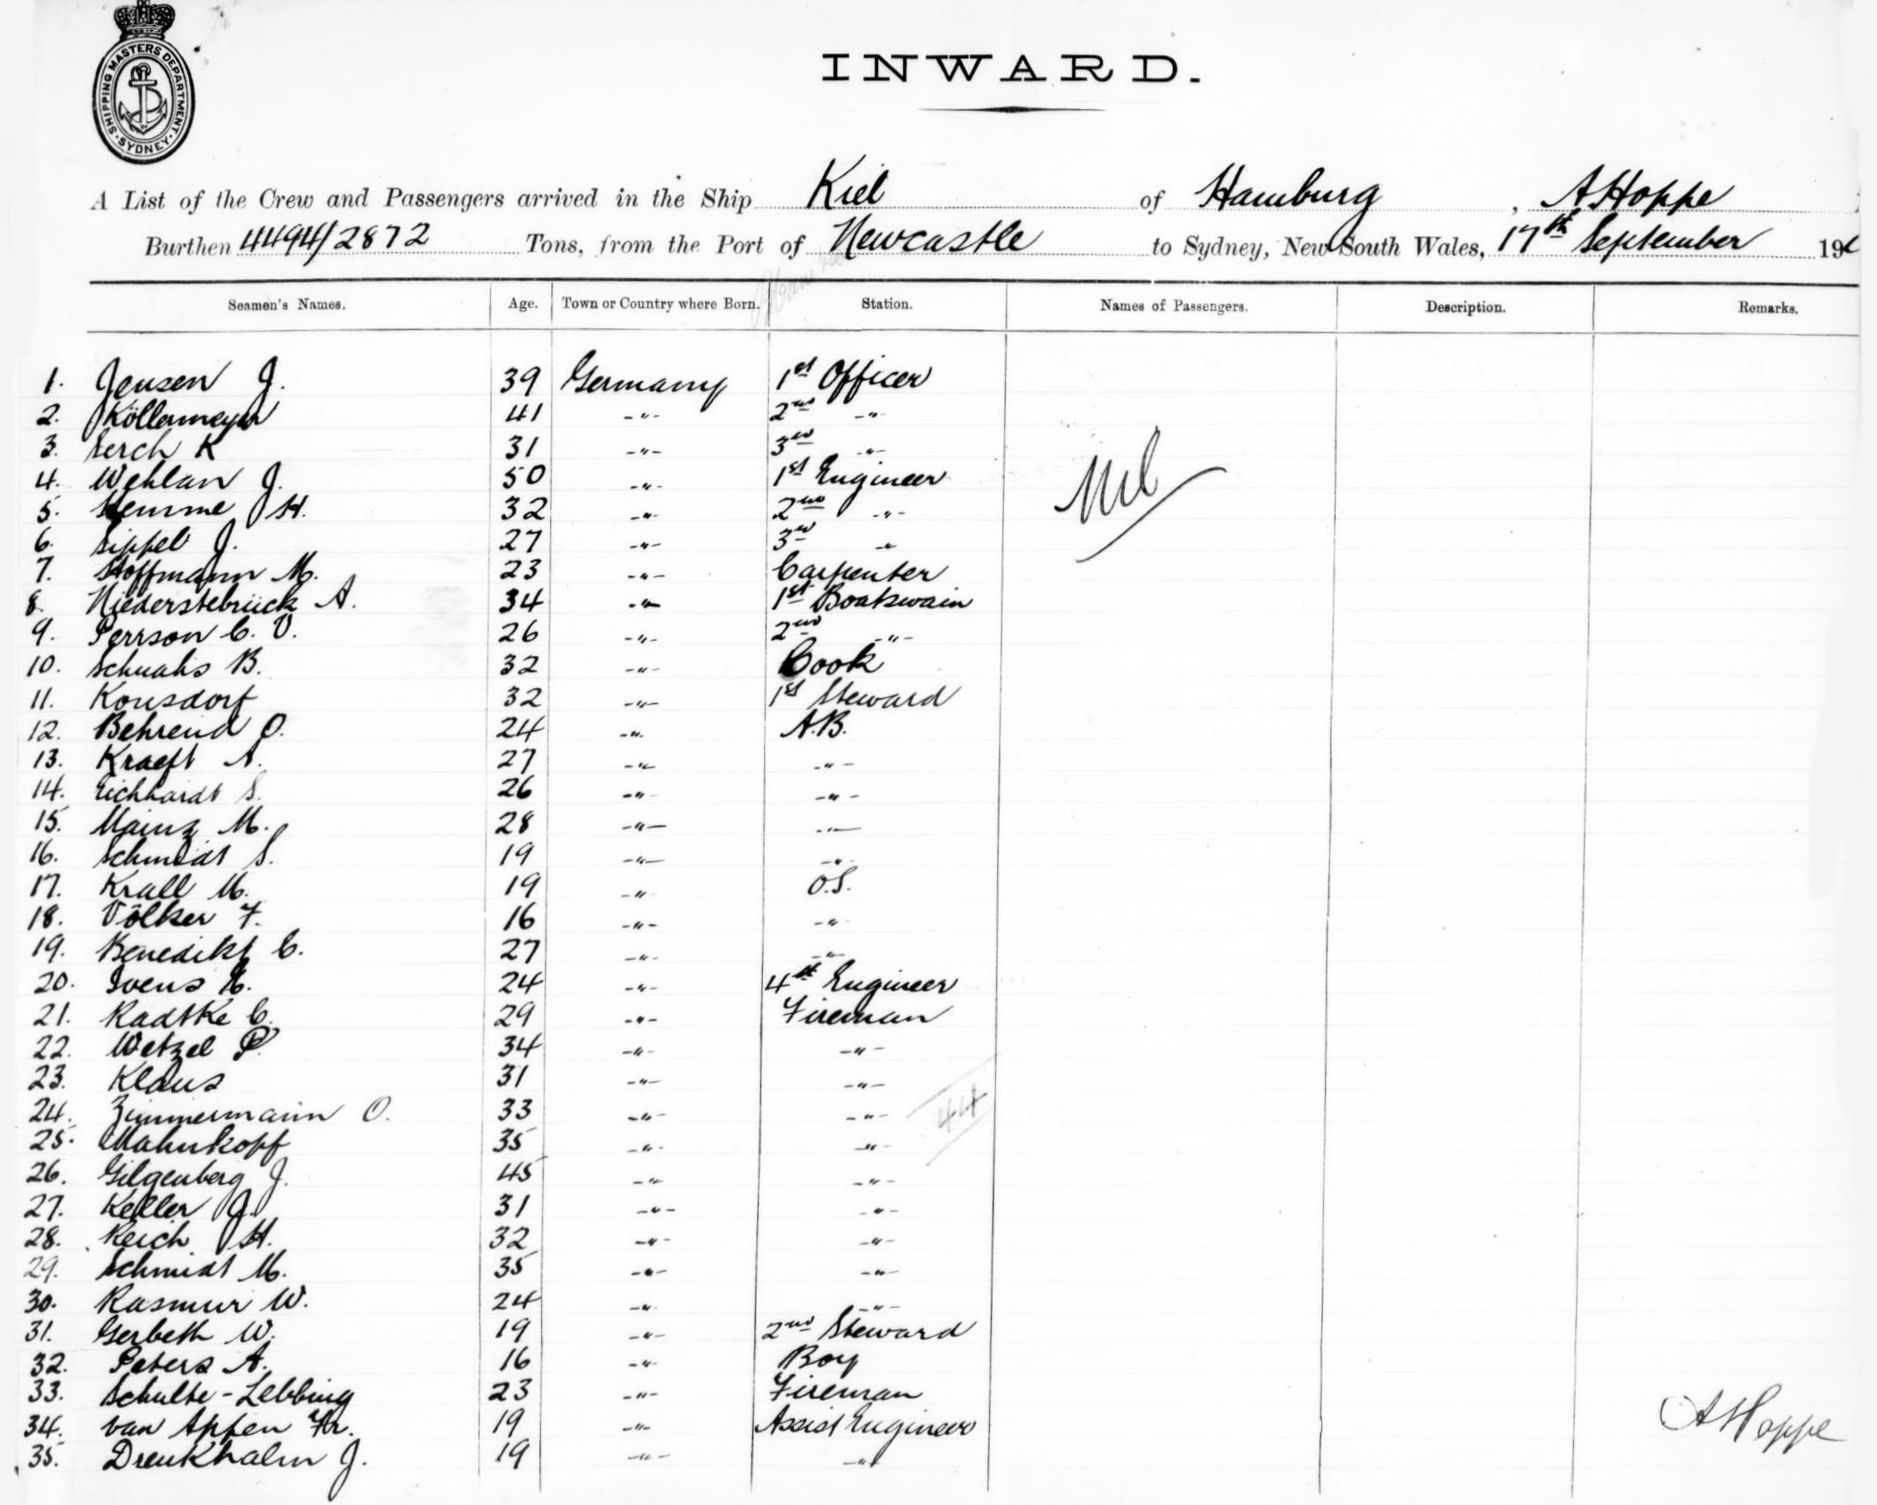 SHIPPING MASTERS DEPARTMENT · SYDNEY ·
INWARD.
A List of the Crew and Passengers arrived in the Ship Kiel of Hamburg, A Hoppe
Burthen 4494/2872 Tons, from the Port of Newcastle to Sydney, New South Wales, 17th September 19
Seamen's Names. Age. Town or Country where Born. Station. Names of Passengers. Description. Remarks.
1. Jensen J. 39 Germany 1st Officer
2. Köllermeyer 41 -"- 2nd -"-
3. Serch K 31 -"- 3rd -"-
4. Wehlan J. 50 -"- 1st Engineer
Nil
5. Hemme H. 32 -"- 2nd -"-
6. Sippel J. 27 -"- 3rd -"-
7. Hoffmann M. 23 -"- Carpenter
8. Niederstebrück A. 34 -"- 1st Boatswain
9. Perrson C. V. 26 -"- 2nd -"-
10. B. 32 -"- Cook
11. Konsdorf 32 -"- 1st Steward
12. Behrend O. 24 -"- A.B.
13. Kraeft A. 27 -"- -"-
14. Eichhardt S. 26 -"- -"-
15. Mainz M. 28 -"- -"-
16. Schmidt S. 19 -"- -"-
17. Krall M. 19 -"- O.S.
18. Völker F. 16 -"- -"-
19. Benedikt C. 27 -"- -"-
20. Ivens H. 24 -"- 4th Engineer
21. Radtke C. 29 -"- Fireman
22. Wetzel P. 34 -"- -"-
23. Klaus 31 -"- -"-
24. Zimmermann O. 33 -"- -"-
44
25. Mahnkopf 35 -"- -"-
26. Gilgenberg J. 45 -"- -"-
27. Keller J. 31 -"- -"-
28. Reich H. 32 -"- -"-
29. Schmidt M. 35 -"- -"-
30. Rasmur W. 24 -"- -"-
31. Gerbeth W. 19 -"- 2nd Steward
32. Peters A. 16 -"- Boy
33. Schulte-Lebbing 23 -"- Fireman
34. van Apfen Fr. 19 -"- Assist Engineer
35. Drenkhahn J. 19 -"- -"-
A Hoppe